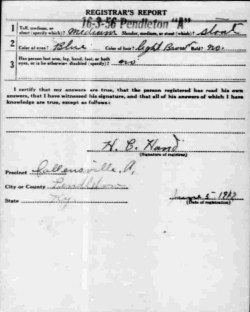 REGISTRAR'S REPORT
16-3-56 Pendleton "A"
1 Tall, medium, or short (specify which)? Medium Slender, medium, or stout (which)? Stout
2 Color of eyes? Blue Color of hair? Light Brow Bald? No.
3 Has person lost arm, leg, hand, foot, or both eyes, or is he otherwise disabled (specify)? no
I certify that my answers are true, that the person registered has read his own answers, that I have witnessed his signature, and that all of his answers of which I have knowledge are true, except as follows:
H. C. Hand
(Signature of registrar)
Precinct
City or County Pendleton
State Ky.
June 5 - 1917
(Date of registration)